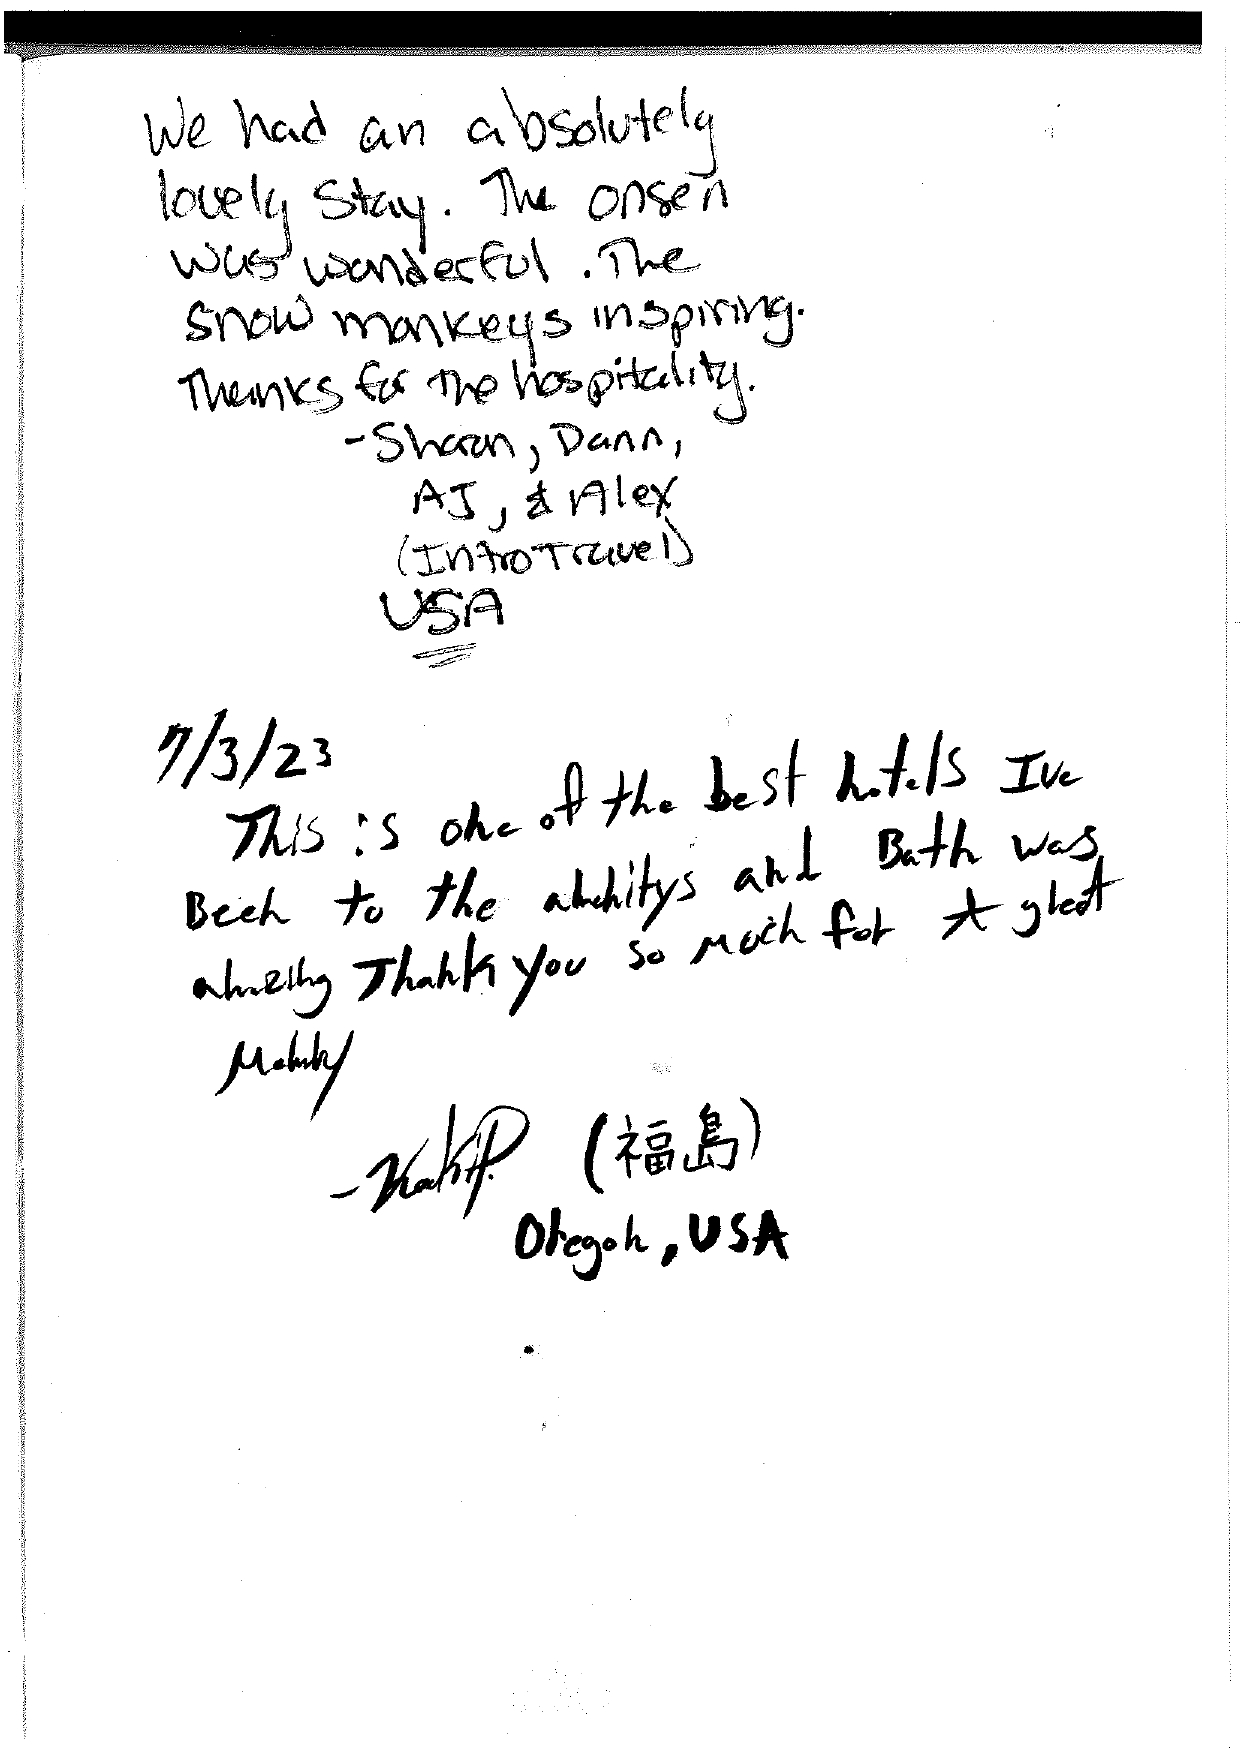 We had an absolutely
lovely stay. The onsen
was wonderful. The
snow monkeys inspiring.
Thanks for the hospitality.
-Sharon, Dann,
AJ, & Alex
(IntroTravel)
USA
7/3/23
This is one of the best hotels Ive
Been to the amenitys and Bath was
amazing Thank you so much for A great
Memory
(福島)
Oregon, USA